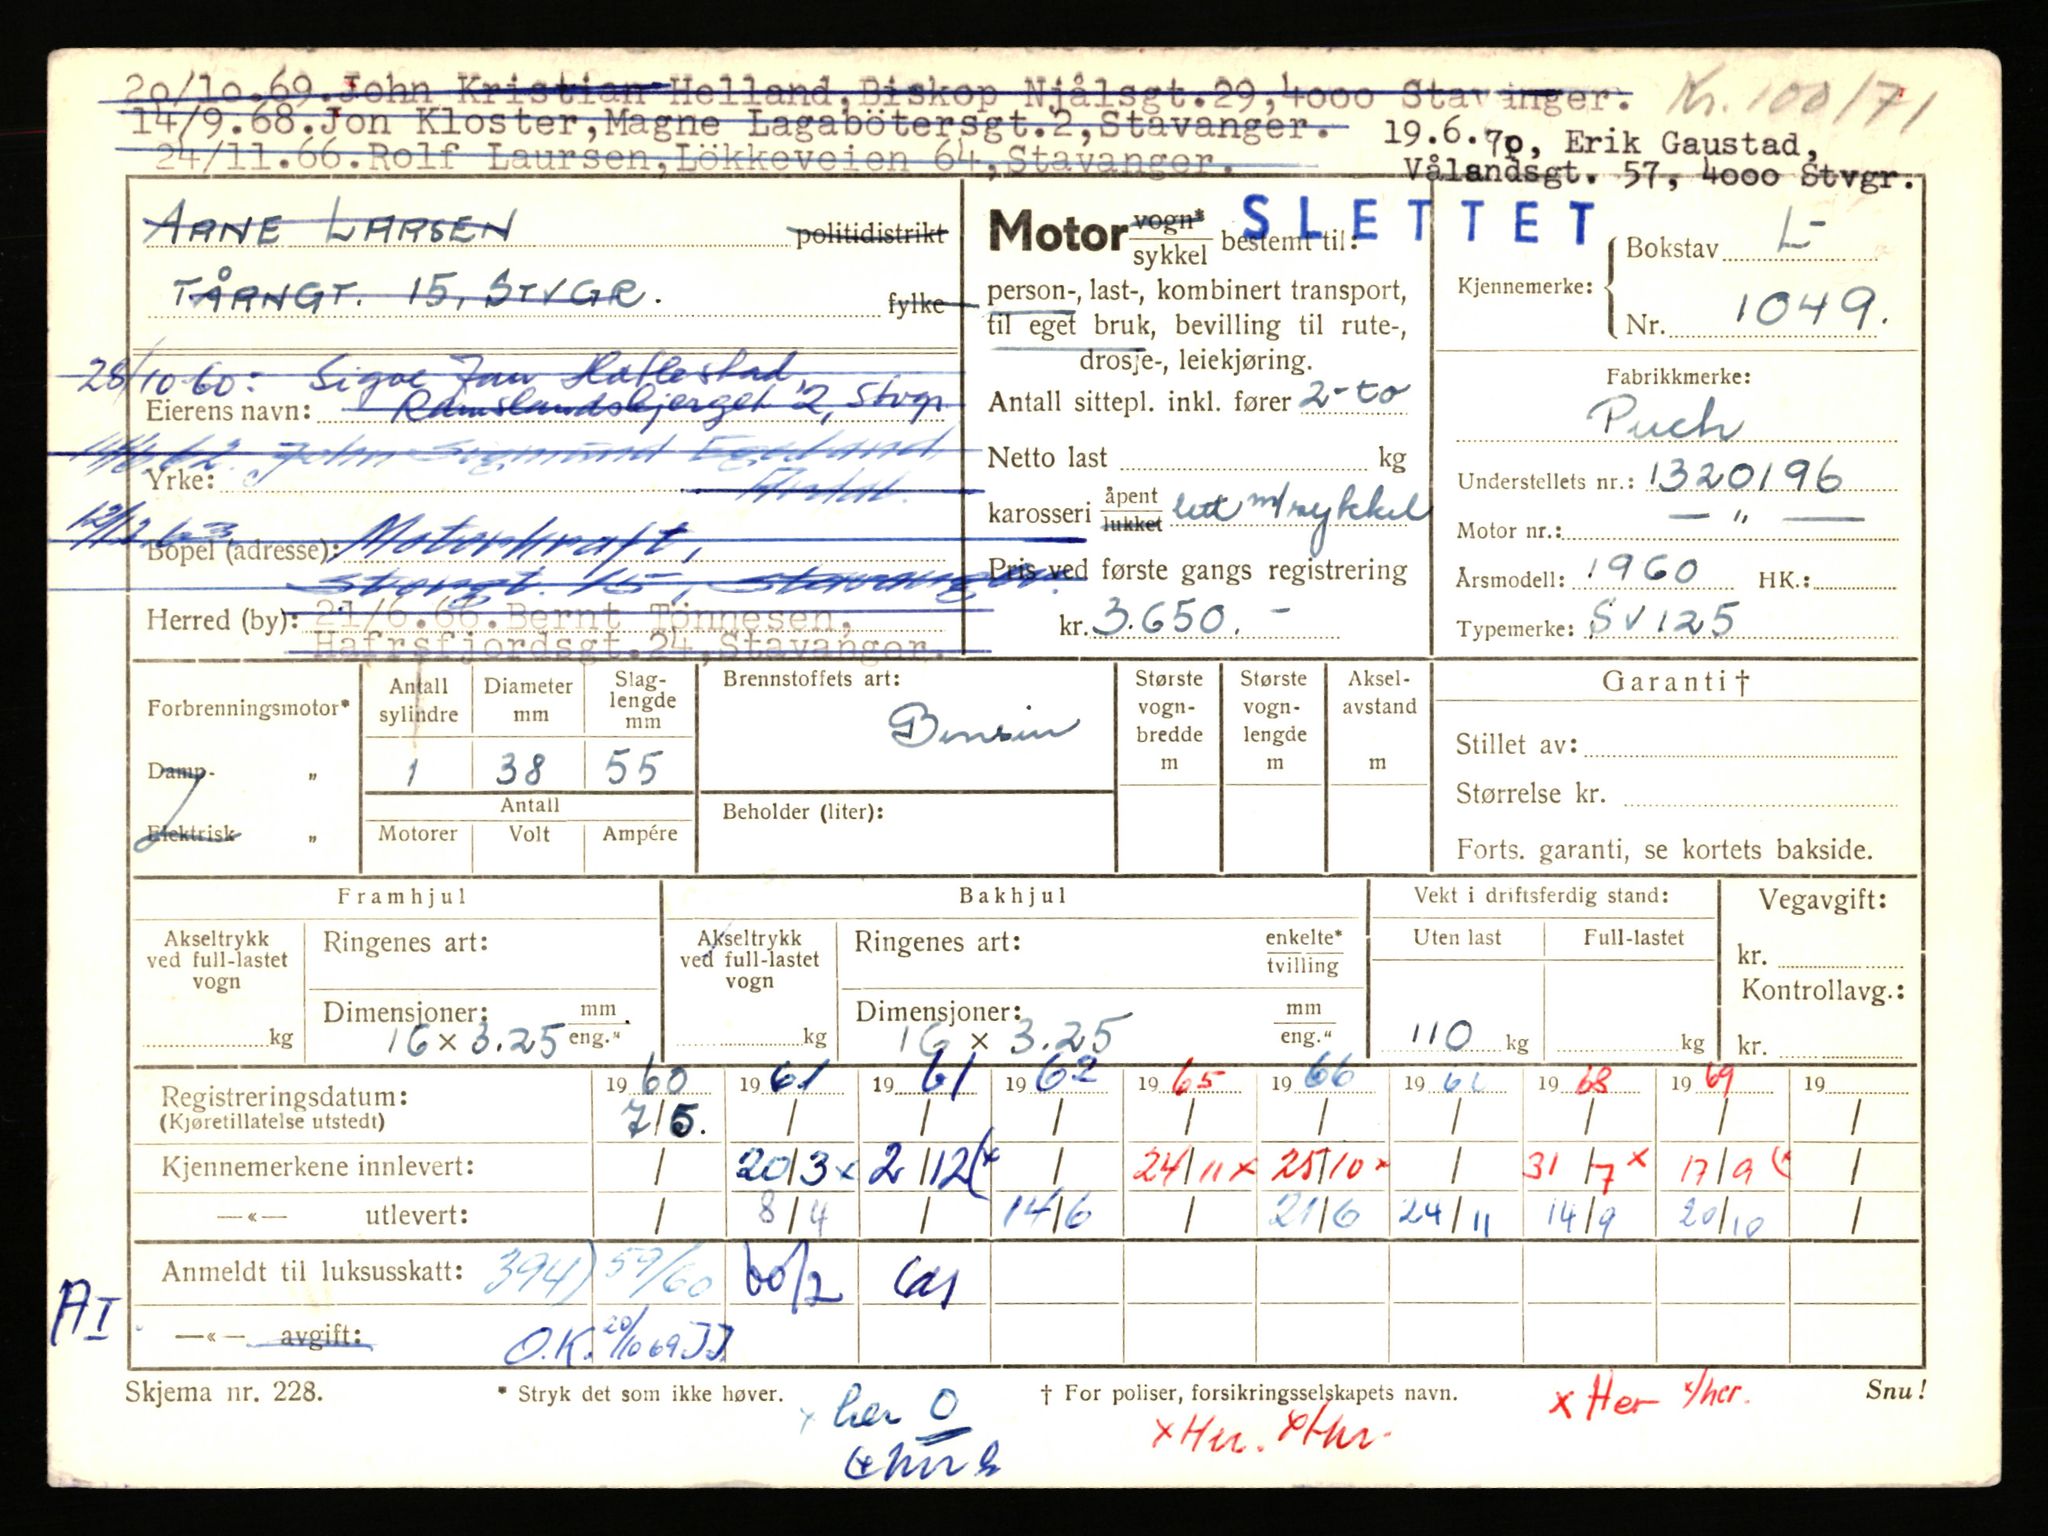 20/10.69.John Kristian Helland,Biskop Njålsgt.29,4000 Stavanger.
Kr. 100/71
14/9.68.Jon Kloster,Magne Lagabötersgt.2,Stavanger.
19.6.70, Erik Gaustad,
24/11.66.Rolf Laursen,Lökkeveien 64,Stavanger.
Vålandsgt. 57, 4000 Stvgr.
ARNE LARSEN politidistrikt
TÅRNGT. 15, STVGR. fylke
28/10-60: Sigve Jan Hallestad,
Eierens navn: Ramslandsbjerget 2, Stvgr.
11/6 62. John Sigmund Egeland,
Yrke:
12/2 63
Bopel (adresse): Motorkraft,
Strengt. 15, Stavanger.
Herred (by): 21/6.66.Bernt Tönnesen,
Hafrsfjordsgt.24,Stavanger.
Motor vogn* sykkel bestemt til:
SLETTET
person-, last-, kombinert transport,
til eget bruk, bevilling til rute-,
drosje-, leiekjøring.
Antall sittepl. inkl. fører 2-to
Netto last kg
karosseri åpent lukket lett m/sykkel
Pris ved første gangs registrering
kr. 3.650.-
Kjennemerke: Bokstav L-
Nr. 1049.
Fabrikkmerke:
Puch
Understellets nr.: 1320196
Motor nr.: — " —
Årsmodell: 1960 HK.:
Typemerke: SV125
Forbrenningsmotor*
Damp- "
Elektrisk "
Antall sylindre
Diameter mm
Slag-lengde mm
1 38 55
Antall
Motorer Volt Ampére
Brennstoffets art:
Bensin
Beholder (liter):
Største vogn-bredde m
Største vogn-lengde m
Aksel-avstand m
Garanti †
Stillet av:
Størrelse kr.
Forts. garanti, se kortets bakside.
Framhjul
Akseltrykk ved full-lastet vogn
kg
Ringenes art:
Dimensjoner: mm eng."
16 x 3.25
Bakhjul
Akseltrykk ved full-lastet vogn
kg
Ringenes art: enkelte* tvilling
Dimensjoner: mm eng."
16 x 3.25
Vekt i driftsferdig stand:
Uten last Full-lastet
110 kg kg
Vegavgift:
kr.
Kontrollavg.:
kr.
Registreringsdatum: 1960 1961 1961 1962 1965 1966 1966 1968 1969 19
(Kjøretillatelse utstedt) 7/5. / / / / / / / / /
Kjennemerkene innlevert: / 20/3x 2/12(x / 24/11x 25/10x / 31/7x 17/9(x /
—«— utlevert: / 8/4 / 14/6 / 21/6 24/11 14/9 20/10 /
Anmeldt til luksusskatt: 394) 59/60 60/2
AI
—«— avgift: O.K. 20/10 69 JJ.
Skjema nr. 228.
* Stryk det som ikke høver.
† For poliser, forsikringsselskapets navn.
Snu!
x her 0
x Her. x Her.
x Her x/her.